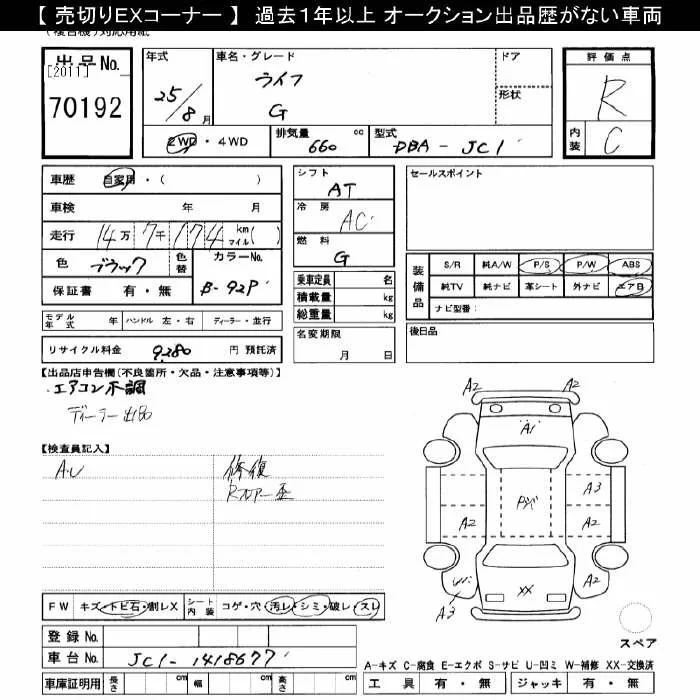 【 売切りEXコーナー 】 過去1年以上 オークション出品歴がない車両
(複合機)対応用紙
出品No.
[2011]
70192
年式
25/8月
車名・グレード
ライフ
G
ドア
形状
評価点
R
内装
C
2WD・4WD
排気量 cc
660
型式
DBA - JC1
車歴 自家用・( )
車検 年 月
走行 14万7千174 km マイル( )
色 ブラック
色替
カラーNo.
B-92P
保証書 有・無
シフト
AT
冷房
AC
燃料
G
乗車定員 名
積載量 kg
総重量 kg
セールスポイント
装備品
S/R 純A/W P/S P/W ABS
純TV 純ナビ 革シート 外ナビ エアB
ナビ型番:
モデル年式 年 ハンドル 左・右 ディーラー・並行
名変期限
月 日
後日品
リサイクル料金 9,280 円 預託済
【出品店申告欄(不良箇所・欠品・注意事項等)】
エアコン不調
ディーラー出品
【検査員記入】
A.U
修復
Rフロアー歪
A2 A2
A1
A3
A2 A2
A2
XX
A3
スペア
FW キズ・トビ石・割レX
シート内装 コゲ・穴・汚レ・シミ・破レ・スレ
登録No.
車台No. JC1-1418677
車庫証明用 長さ cm 幅 cm 高さ cm
A-キズ C-腐食 E-エクボ S-サビ U-凹ミ W-補修 XX-交換済
工具 有・無 ジャッキ 有・無